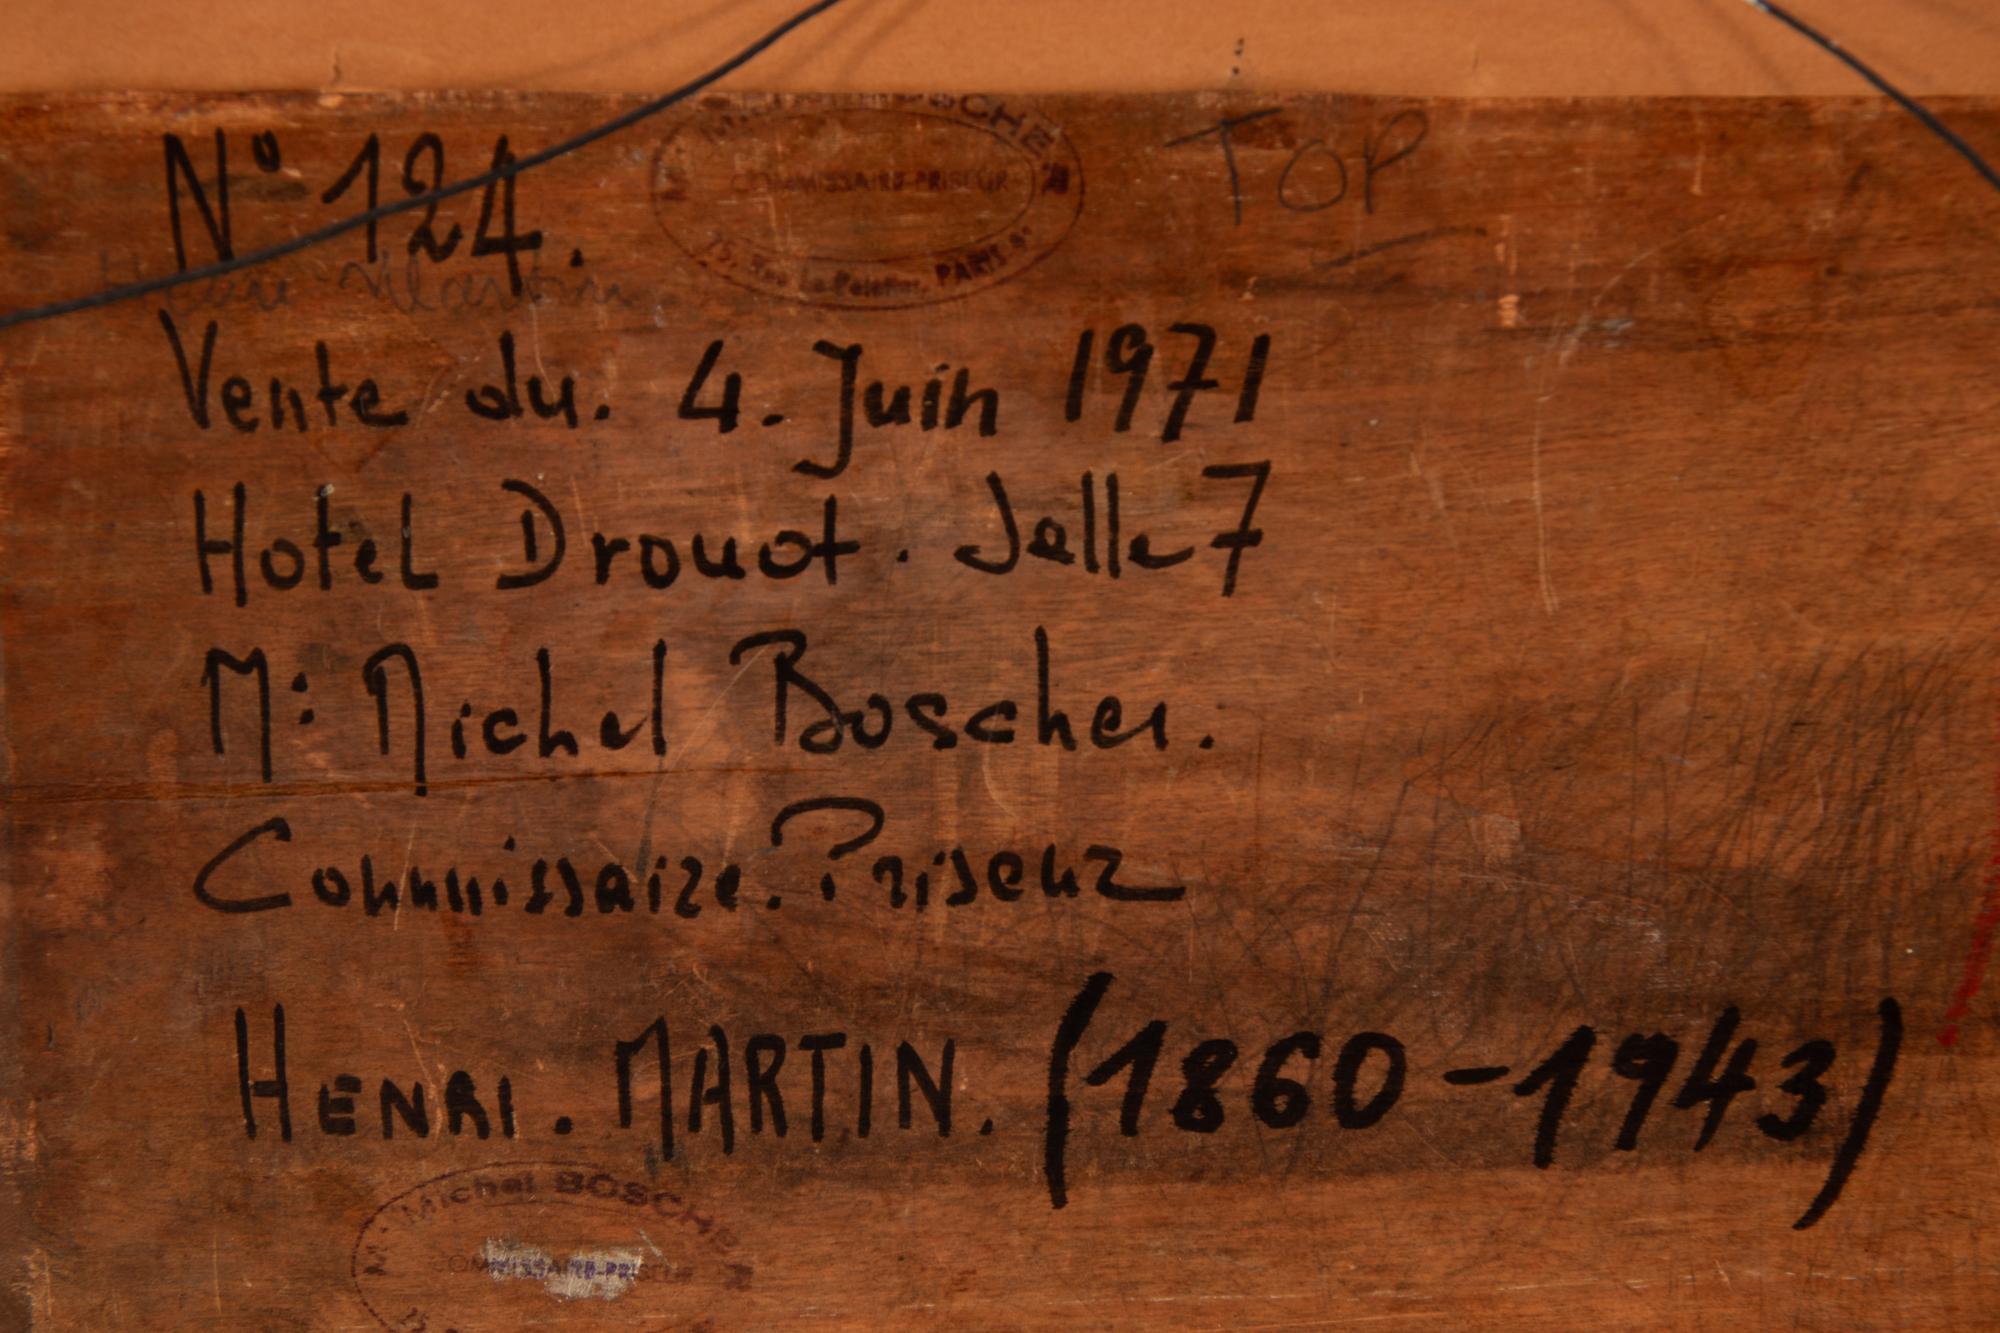 N° 124.
Mᵉ Michel BOSCHER
COMMISSAIRE-PRISEUR
15, Rue Le Peletier, PARIS 9ᵉ
TOP
Henri Martin
Vente du. 4. Juin 1971
Hotel Drouot. Salle 7
Mᵉ: Michel Boscher.
Commissaire. Priseur
HENRI. MARTIN. (1860-1943)
M Michel BOSCHER
COMMISSAIRE-PRISEUR